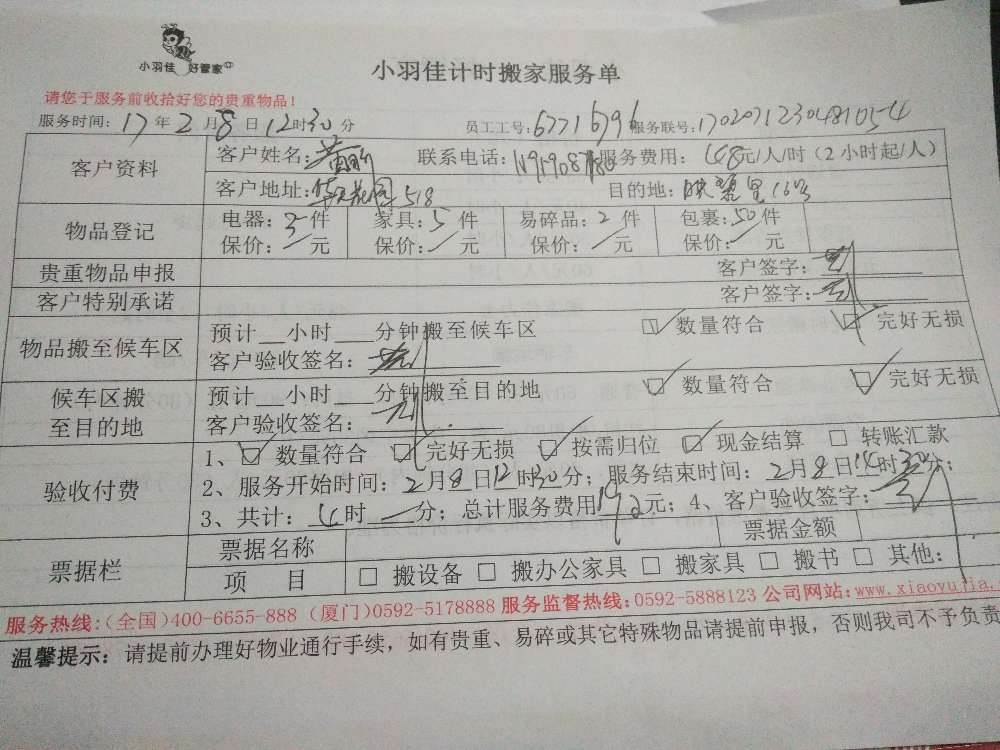 小羽佳 好管家
小羽佳计时搬家服务单
请您于服务前收拾好您的贵重物品!
服务时间: 17年2月8日12时30分 员工工号: 6771 6796 服务联号: 1702071230481054
客户资料 客户姓名: 联系电话: 服务费用: 48元/人/时(2小时起/人)
客户地址: 518 目的地: 16号
物品登记 电器: 3件 家具: 5件 易碎品: 2件 包裹: 50件
保价: / 元 保价: / 元 保价: / 元 保价: / 元
贵重物品申报 客户签字:
客户特别承诺 客户签字:
物品搬至候车区 预计__小时___分钟搬至候车区 ☑ 数量符合 ☑ 完好无损
客户验收签名:
候车区搬至目的地 预计 小时 分钟搬至目的地 ☑ 数量符合 ☑ 完好无损
客户验收签名:
验收付费 1、☑ 数量符合 ☑ 完好无损 ☑ 按需归位 ☑ 现金结算 □ 转账汇款
2、服务开始时间: 2月8日12时30分; 服务结束时间: 2月8日14时30分;
3、共计: 时 分; 总计服务费用192元; 4、客户验收签字:
票据栏 票据名称 票据金额
项 目 □ 搬设备 □ 搬办公家具 □ 搬家具 □ 搬书 □ 其他:
服务热线:(全国)400-6655-888 (厦门)0592-5178888 服务监督热线:0592-5888123 公司网站:www.xiaoyujia.
温馨提示: 请提前办理好物业通行手续,如有贵重、易碎或其它特殊物品请提前申报,否则我司不予负责